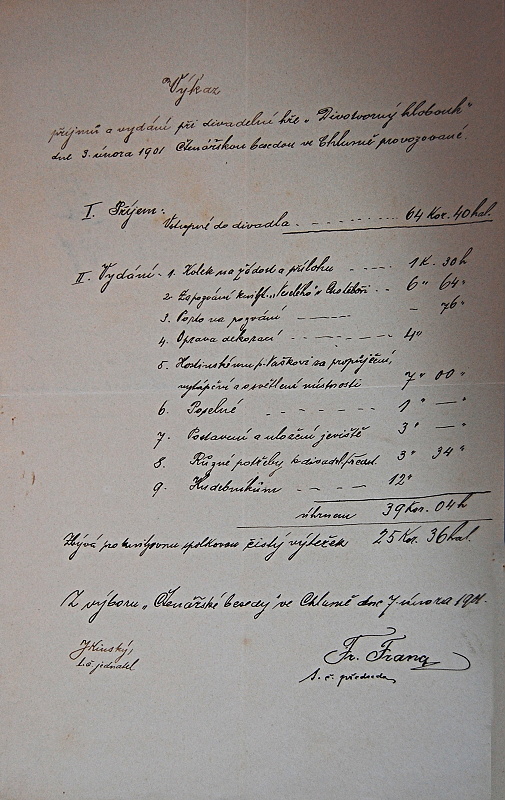 Výkaz
příjmů a vydání při divadelní hře „Divotvorný klobouk"
dne 3. února 1901 Čtenářskou besedou ve Chlumě provozované.
I. Příjem:
Vstupné do divadla. 64 Kor. 40 hal.
II. Vydání - 1. Kolek na žádost a přílohu 1 K. 30 h
2. Za pozvání knift. „Veselého" v Chotěboři 6 " 64 "
3. Porto na pozvání — 76 "
4. Oprava dekorací 4 "
5. Hostinskému p. Vaškovi za propůjčení,
vytápění a osvětlení místností 7 " 00 "
6. Poselné 1 " — "
7. Postavení a uložení jeviště 3 " — "
8. Různé potřeby k divadel. předst. 3 " 34 "
9. Hudebníkům 12 "
úhrnem 39 Kor. 04 h
Zbývá pro knihovnu spolkovou čistý výtěžek 25 Kor. 36 hal.
Z výboru „Čtenářské besedy" ve Chlumě dne 7. února 1901.
J Kinský,
t. č. jednatel
Fr. Franc
t. č. předseda